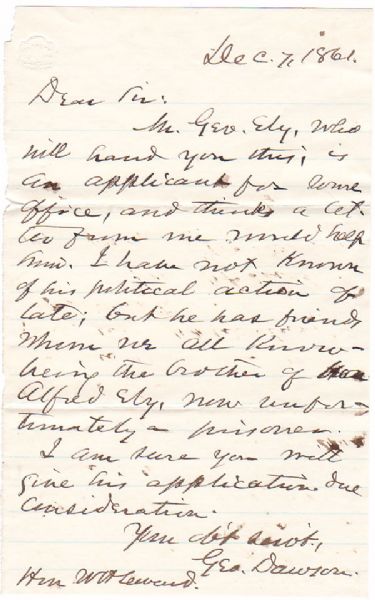 Dec. 7, 1861.
Dear Sir:
M. Geo. Ely, who
will hand you this, is
an applicant for some
office, and thinks a let-
ter from me would help
him. I have not known
of his political action of
late; but he has friends
whom we all know-
being the brother of
Alfred Ely, now unfor-
tunately a prisoner.
I am sure you will
give his application due
consideration.
Your ob't serv't,
Geo. Dawson.
Hon Wm H Seward.